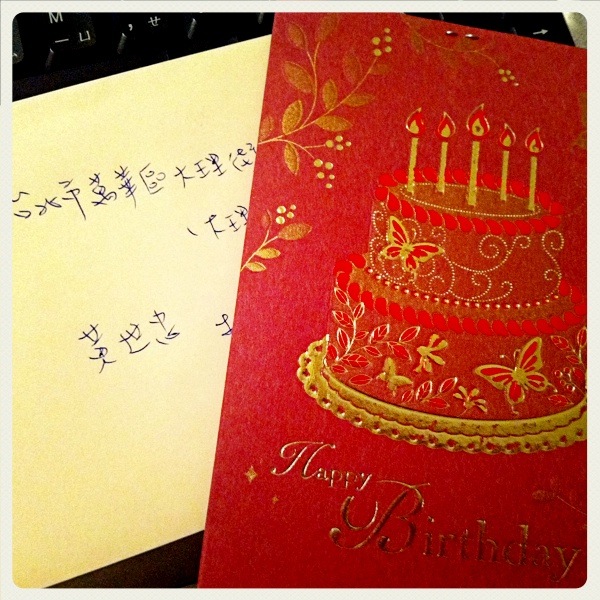 M
ㄩ , ㄝ
台北市萬華區大理街
(大理
黃世忠
Happy
Birthday